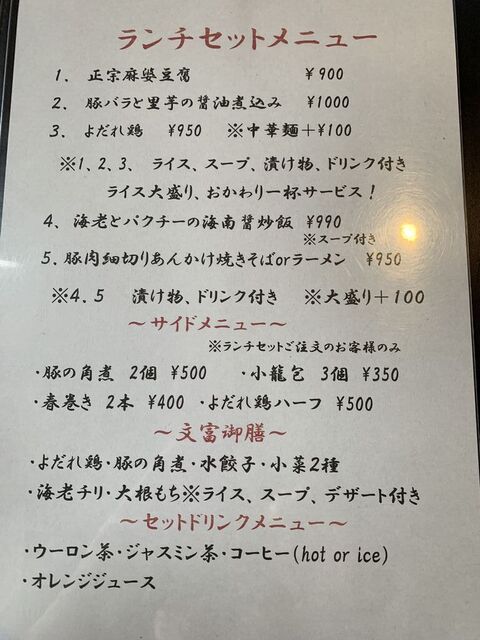 ランチセットメニュー
1、 正宗麻婆豆腐 ¥900
2、 豚バラと里芋の醤油煮込み ¥1000
3、よだれ鶏 ¥950 ※中華麺+¥100
※1、2、3、 ライス、スープ、漬け物、ドリンク付き
ライス大盛り、おかわり一杯サービス!
4、 海老とパクチーの海南醤炒飯 ¥990
※スープ付き
5、豚肉細切りあんかけ焼きそばorラーメン ¥950
※4、5 漬け物、ドリンク付き ※大盛り+100
～サイドメニュー～
※ランチセットご注文のお客様のみ
・豚の角煮 2個 ¥500 ・小龍包 3個 ¥350
・春巻き 2本 ¥400 ・よだれ鶏ハーフ ¥500
～文富御膳～
・よだれ鶏・豚の角煮・水餃子・小菜2種
・海老チリ・大根もち※ライス、スープ、デザート付き
～セットドリンクメニュー～
・ウーロン茶・ジャスミン茶・コーヒー(hot or ice)
・オレンジジュース